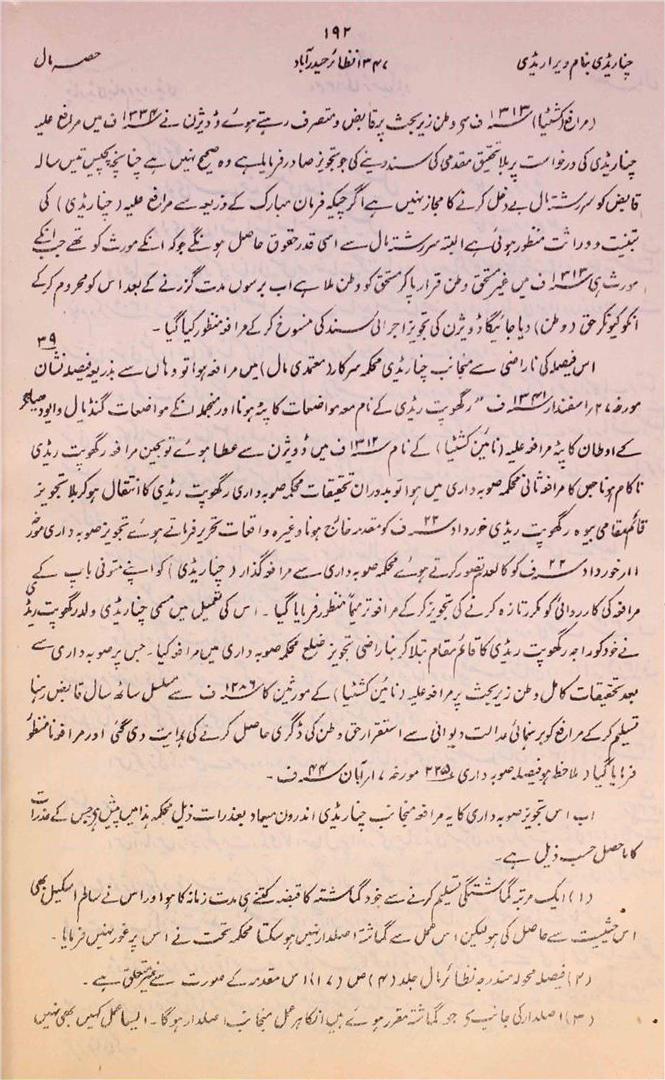 ۱۹۲
چنا ریڈی بنام ویرا ریڈی ۱۳۴۷ نظائر حیدرآباد حصہ مال
(مرافع کشٹیا) ۱۳۱۳ سنہ ف سے وطن زیر بحث پر قابض و متصرف رہتے ہوئے ڈویژن نے ۱۳۳۴ سنہ ف میں مرافع علیہ
چنا ریڈی کی درخواست پر بلا تحقیق مقدمی کی سند دینے کی جو تجویز صادر فرمایا ہے وہ صحیح نہیں ہے چنانچہ پچیس تیس سالہ
قابض کو سررشتہ مال بے دخل کرنے کا مجاز نہیں ہے اگرچیکہ فرمان مبارک کے ذریعہ سے مرافع علیہ (چنا ریڈی) کی
تبنیت و وراثت منظور ہوئی ہے البتہ سررشتہ مال سے اسی قدر حقوق حاصل ہونگے جو کہ انکے مورث کو تھے جب انکے
مورث ہی ۱۳۱۳ سنہ ف میں غیر مستحق وطن قرار پا کر مستحق کو وطن ملا ہے اب برسوں مدت گزرنے کے بعد اس کو محروم کر کے
انکو کیونکر حق (وطن) دیا جائیگا ڈویژن کی تجویز اجرائی سند کی منسوخ کر کے مرافعہ منظور کیا گیا ۔
اس فیصلہ کی ناراضی سے منجانب چنا ریڈی محکمہ سرکار (معتمدی مال) میں مرافعہ ہوا تو وہاں سے بذریعہ فیصلہ نشان ۳۹
مورخہ ۲۷ اسفندار ۱۳۴۱ سنہ ف "رگھوپت ریڈی کے نام معہ مواضعات کا پٹہ ہونا اور منجملہ انکے مواضعات گنڈیال و
کے اوطان کا پٹہ مرافعہ علیہ (نائین کشٹیا) کے نام ۱۳۱۲ سنہ ف میں ڈویژن سے عطا ہوئے تو بحین مرافعہ رگھوپت ریڈی
ناکام ہونا جس کا مرافعہ ثانی محکمہ صوبہ داری میں ہوا تو بدوران تحقیقات محکمہ صوبہ داری رگھوپت ریڈی کا انتقال ہو کر بلا تجویز
قائم مقامی بیوہ رگھوپت ریڈی خورداد ۲۲ سنہ ف کو مقدمہ خارج ہونا وغیرہ واقعات تحریر فرماتے ہوئے تجویز صوبہ داری مورخہ
۱۱ خورداد ۲۲ سنہ ف کو کالعدم تصور کرتے ہوئے محکمہ صوبہ داری سے مرافعہ گذار (چنا ریڈی) کو اپنے متوفی باپ کے
مرافعہ کی کارروائی کو مکرر تازہ کرنے کی تجویز کر کے مرافعہ ترمیماً منظور فرمایا گیا ۔ اس کی تعمیل میں مسمی چنا ریڈی ولد رگھوپت ریڈی
نے خود کو مراجعہ رگھوپت ریڈی کا قائم مقام بتلا کر بنا راضی تجویز ضلع محکمہ صوبہ داری میں مرافعہ کیا ۔ جس پر صوبہ داری سے
بعد تحقیقات کامل وطن زیر بحث پر مرافعہ علیہ (نائین کشٹیا) کے مورثین کا ۱۲۸۶ سنہ ف سے مسلسل ساٹھ سال قابض رہنا
تسلیم کر کے مرافع کو برہنمائی عدالت دیوانی سے استقرار حق وطن کی ڈگری حاصل کرنے کی ہدایت دی گئی اور مرافعہ نامنظور
فرمایا گیا (ملاحظہ ہو فیصلہ صوبہ داری ۲۲۵ مورخہ ۷ ار آبان ۴۴ سنہ ف ۔
اب اس تجویز صوبہ داری کا یہ مرافعہ منجانب چنا ریڈی اندرون میعاد بعذرات ذیل محکمہ ہذا میں پیش ہے جس کے عذرات
کا ماحصل حسب ذیل ہے۔
(۱) ایک مرتبہ گماشتگی تسلیم کرنے سے خود گماشتہ کا قبضہ کتنے ہی مدت زمانہ کا ہو اور اس نے سالم اسکیل بھی
اس حیثیت سے حاصل کی ہو لیکن اس عمل سے گماشتہ اصلدار نہیں ہو سکتا محکمہ تحت نے اس پر غور نہیں فرمایا ۔
(۲) فیصلہ محولہ مندرجہ نظائر مال جلد (۴) ص (۱۷) اس مقدمہ کے صورت سے غیر متعلق ہے ۔
(۳) اصلدار کی جانب سے جو گماشتہ مقرر ہوئے ہیں انکا ہر عمل منجانب اصلدار ہوگا ۔ ایسا عمل کہیں بھی نہیں